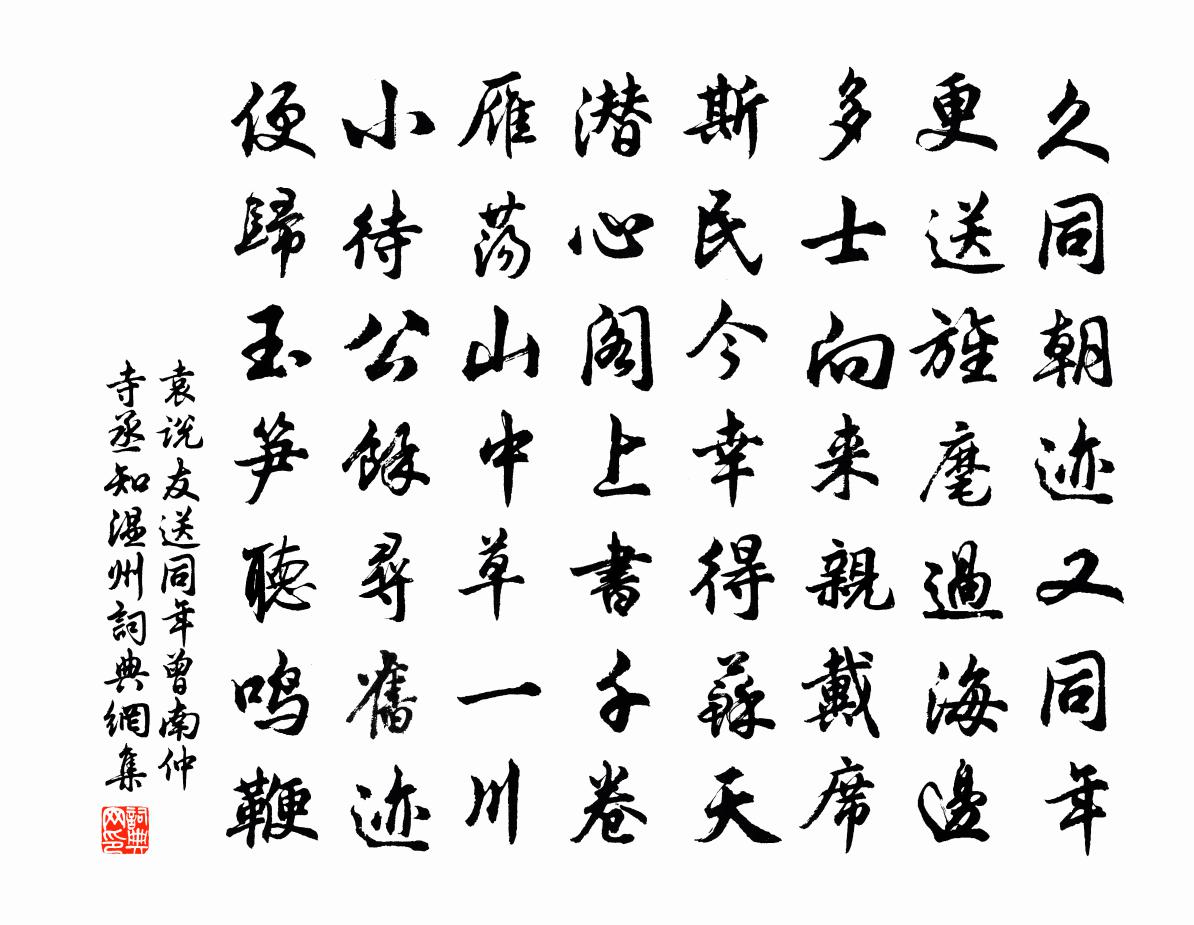 久同朝迹又同年
更送旌麾過海邊
多士向来親戴席
斯民今幸得蘇天
潜心阁上書千卷
雁荡山中草一川
小待公餘尋舊迹
便歸玉笋聽鸣鞭
袁说友送同年曾南仲
寺丞知温州詞典網集
詞典
网印